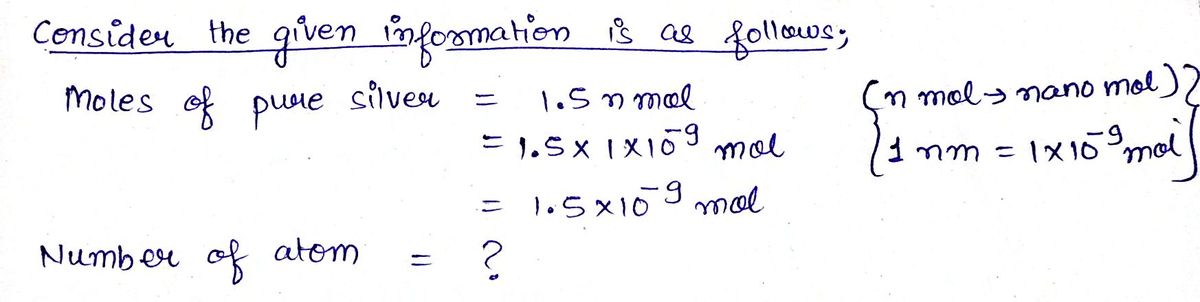 Consider the given information is as follows;
Moles of pure silver = 1.5 n mol (n mol → nano mol)
= 1.5 × 1×10⁻⁹ mol {1 nm = 1×10⁻⁹ mol}
= 1.5 ×10⁻⁹ mol
Number of atom = ?